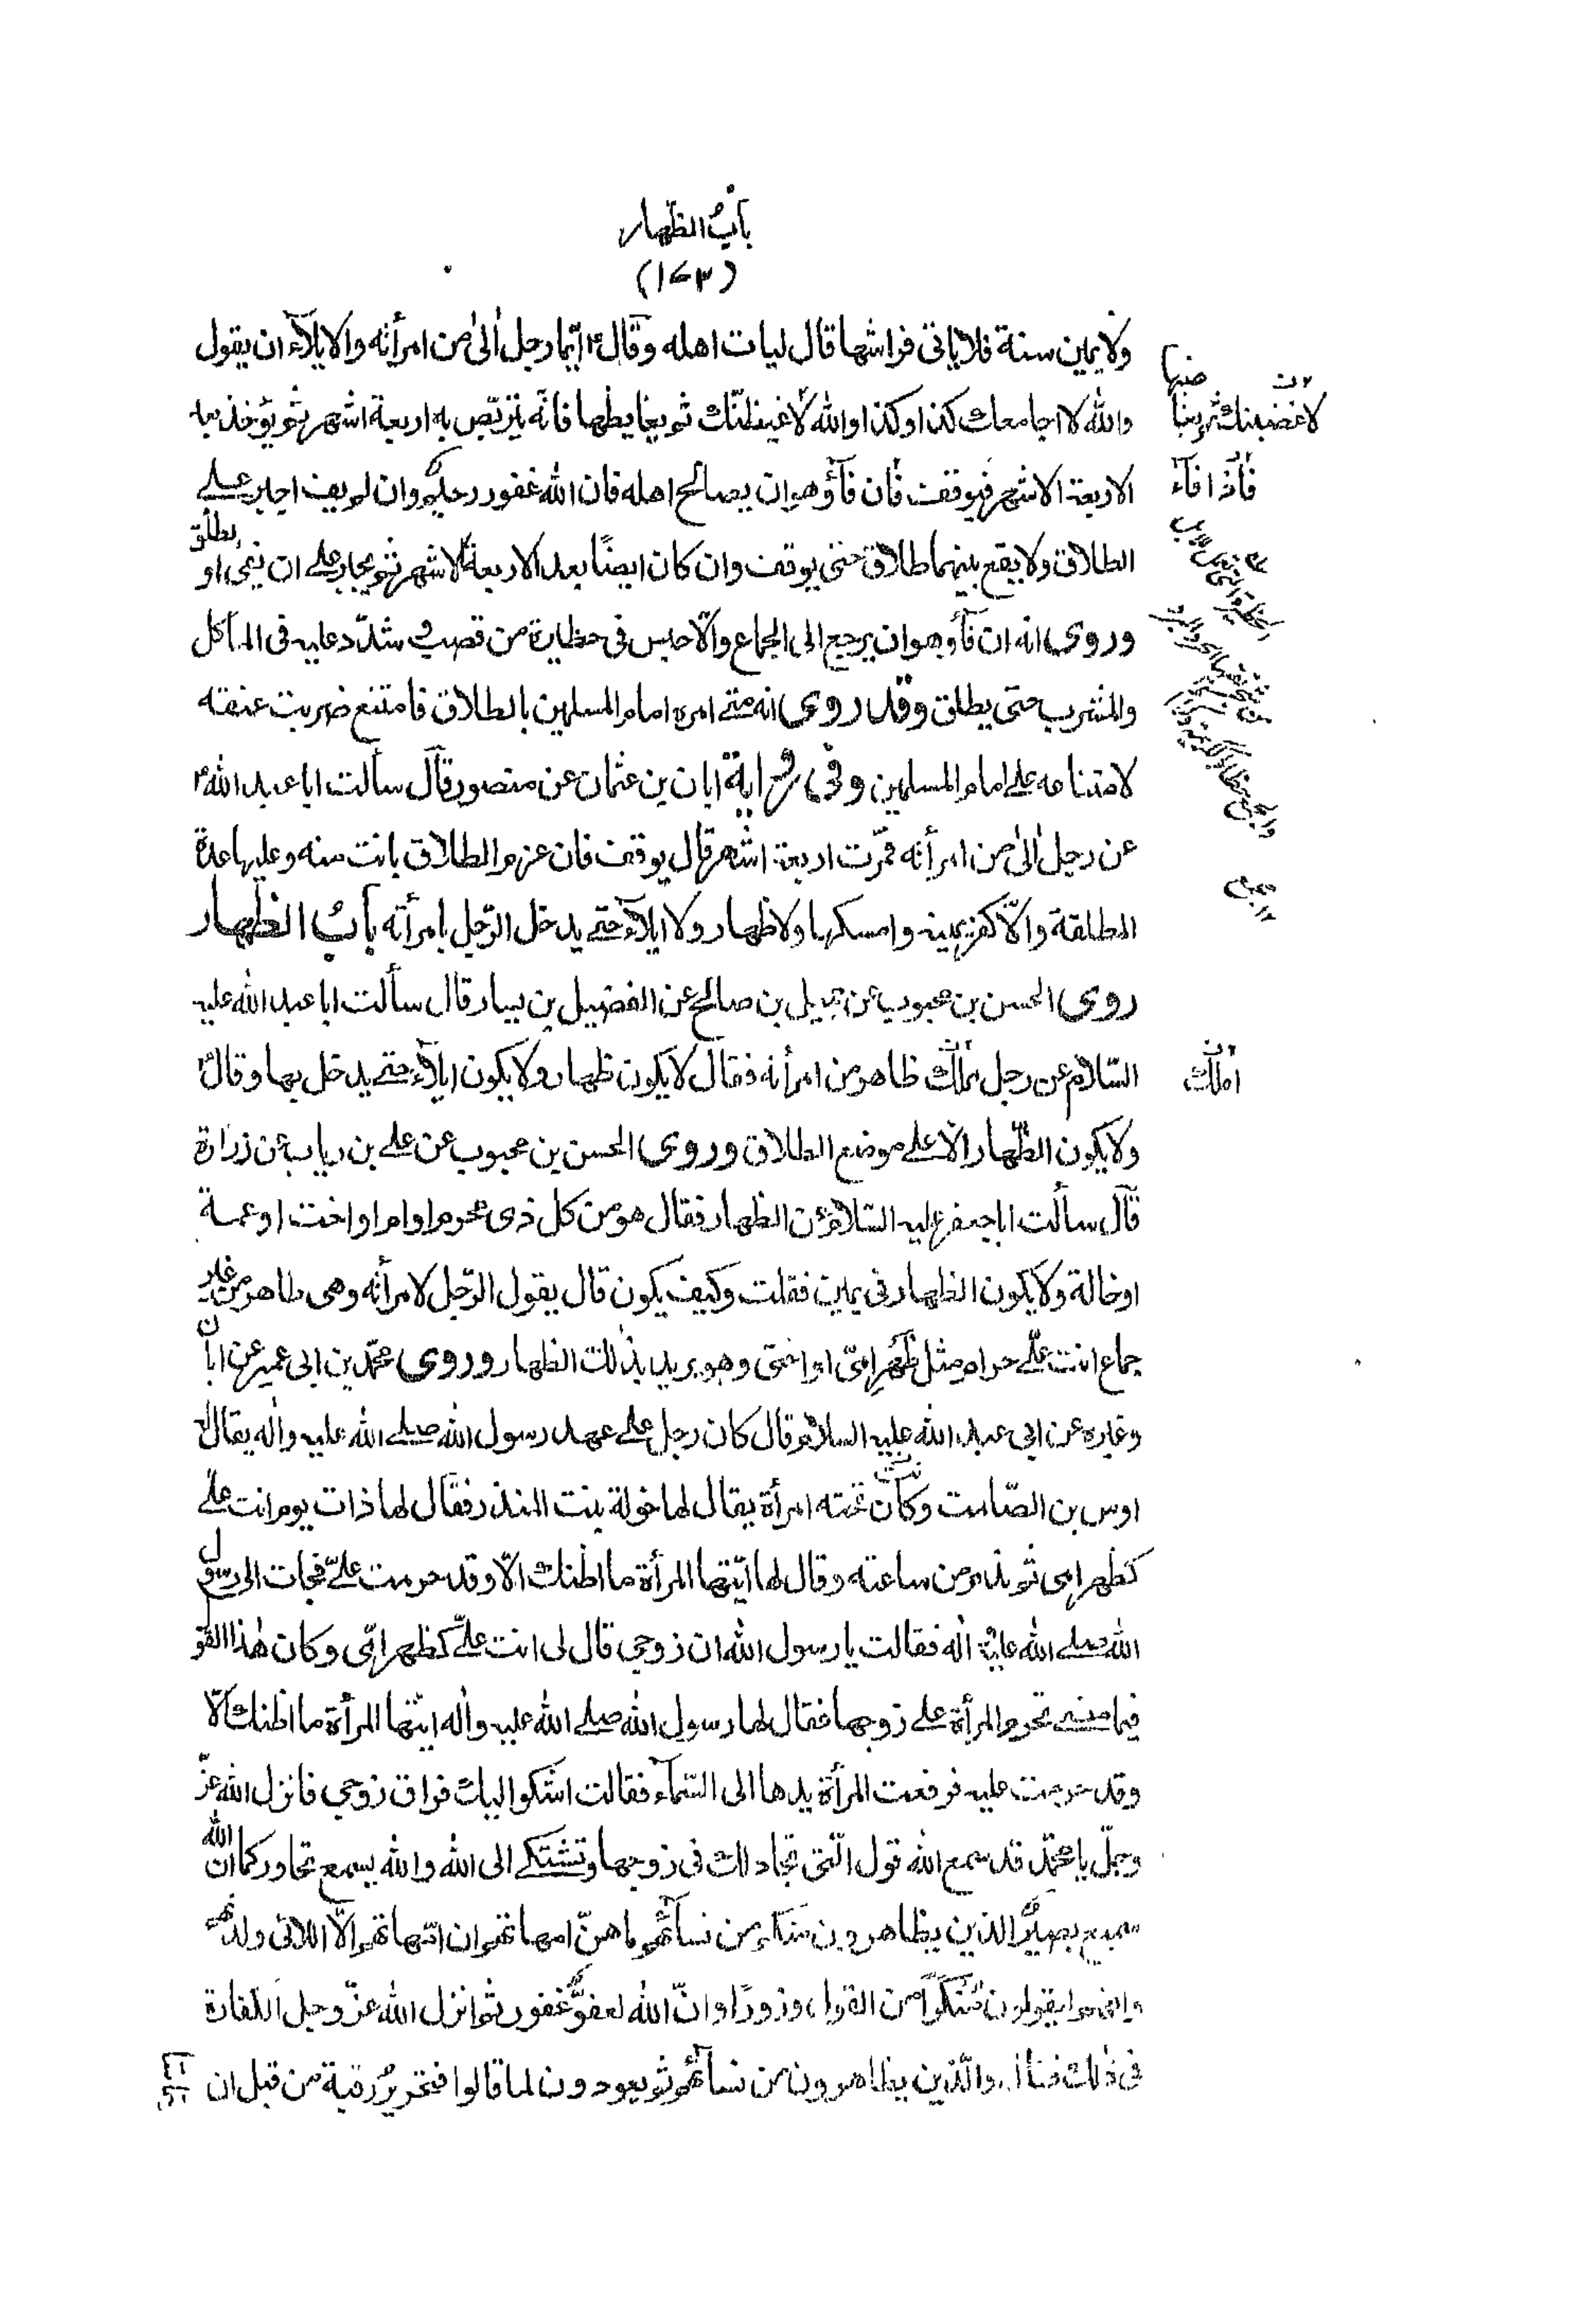 باب الظهار
(١٧٣)
ولا يمين سنة فلا ياتى فراشها قال ليات اهله وقال ايّما رجل الٰى من امرأته والايلآء ان يقول
والله لا اجامعك كذا وكذا والله لاغيظنّك ثم يغايظها فانّه يتربّص به اربعة اشهر ثم يؤخذ بعد
الاربعة الاشهر فيوقف فان فآؤ هو ان يصالح اهله فان الله غفور رحيم وان لم يف اجبر على
الطلاق ولا يقع بينهما طلاق حتى يوقف وان كان ايضًا بعد الاربعة الاشهر ثم يجبر على ان يفى او يطلق
وروى انه ان فآؤ وهو ان يرجع الى الجماع والّا حبس فى حظيرة من قصب وشدّد عليه فى المأكل
والمشرب حتى يطلق وقد روى انه متى امره امام المسلمين بالطلاق فامتنع ضربت عنقه
لامتناعه على امام المسلمين وفى رواية ابان بن عثمان عن منصور قال سألت ابا عبد الله
عن رجل الٰى من امرأته فمرّت اربعة اشهر قال يوقف فان عزم الطلاق بانت منه وعليها عدة
المطلقة والّا كفر يمينه وامسكها ولا ظهار ولا ايلآء حتى يدخل الرّجل بامرأته باب الظهار
روى الحسن بن محبوب عن جميل بن صالح عن الفضيل بن يسار قال سألت ابا عبد الله عليه
السّلام عن رجل مملّك ظاهر من امرأته فقال لا يكون ظهار ولا يكون ايلآء حتى يدخل بها وقال
ولا يكون الظّهار الّا على موضع الطلاق وروى الحسن بن محبوب عن على بن رياب عن زرارة
قال سألت ابا جعفر عليه السّلام عن الظهار فقال هو من كل ذى محرم او ام او اخت او عمة
او خالة ولا يكون الظهار فى يمين فقلت وكيف يكون قال يقول الرّجل لامرأته وهى طاهر من غير
جماع انت علىّ حرام مثل ظهر امّى او اختى وهو يريد بذٰلك الظهار وروى محمّد بن ابى عمير عن ابان
وغيره عن ابى عبد الله عليه السلام قال كان رجل على عهد رسول الله صلى الله عليه واله يقال له
اوس بن الصّامت وكان تحته امرأة يقال لها خولة بنت المنذر فقال لها ذات يوم انت علىّ
كظهر امى ثم ندم من ساعته وقال لها ايّتها المرأة ما اظنك الّا وقد حرمت علىّ فجات الى رسول
الله صلى الله عليه واله فقالت يا رسول الله ان زوجى قال لى انت علىّ كظهر امّى وكان هٰذا القول
فيما مضى تحرم المرأة على زوجها فقال لها رسول الله صلى الله عليه واله ايّتها المرأة ما اظنك الّا
وقد حرمت عليه فرفعت المرأة يدها الى السّمآء فقالت اشكو اليك فراق زوجى فانزل الله عزّ
وجلّ يا محمّد قد سمع الله قول الّتى تجادلك فى زوجها وتشتكى الى الله والله يسمع تحاوركما ان الله
سميع بصير الذين يظاهرون منكم من نسآئهم ما هنّ امهاتهم ان امّهاتهم الّا اللائى ولدنهم
وانهم ليقولون منكرًا من القول وزورًا وانّ الله لعفوٌّ غفور ثم انزل الله عزّ وجل الكفارة
فى ذٰلك فقال والّذين يظاهرون من نسآئهم ثم يعودون لما قالوا فتحرير رقبة من قبل ان
لاغضبنك ثم يغاضبها
فاذا فآء
املك